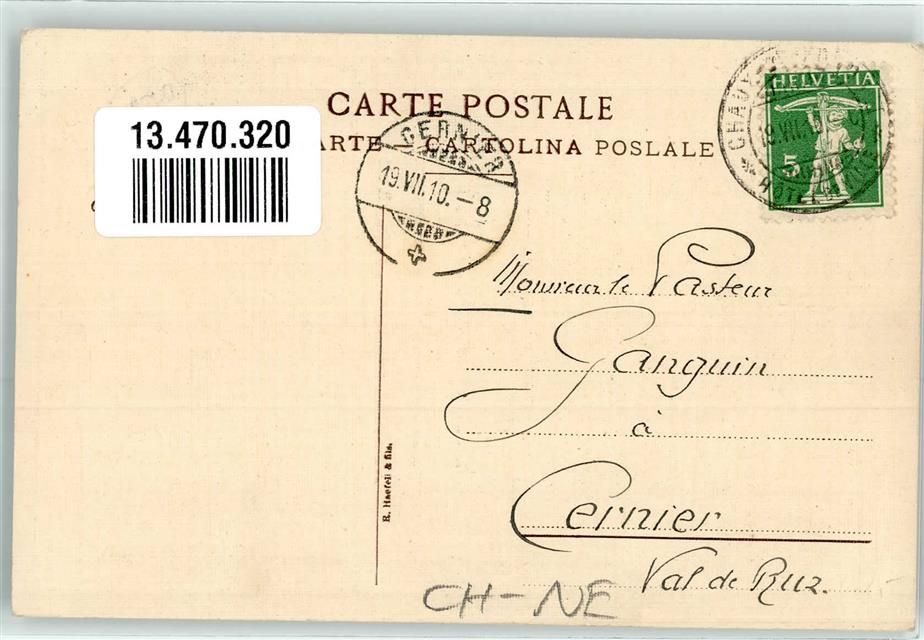 CARTE POSTALE
13.470.320
ARTE – CARTOLINA POSLALE
CERNIER
19.VII.10.–8
HELVETIA
5
Monsieur le Pasteur
Ganguin
à
Cernier
Val de Ruz.
R. Haefeli & fils.
CH-NE